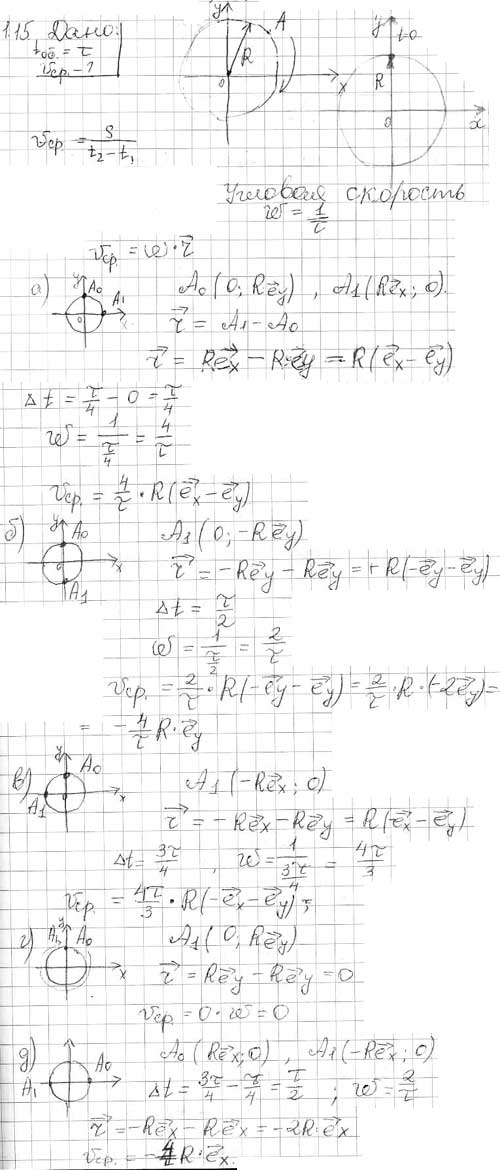 1.15 Дано:
tоб. = τ
vср. - ?
y
A
R
0
x
y
t=0
R
0
x
vср. = S / (t₂ - t₁)
Угловая скорость
w = 1/τ
v⃗ср. = w · r⃗
а) y A₀ A₁ 0 x
A₀ (0; Re⃗y) , A₁ (Re⃗x; 0).
r⃗ = A₁ - A₀
r⃗ = Re⃗x - R·e⃗y = R(e⃗x - e⃗y)
Δt = τ/4 - 0 = τ/4
w = 1/(τ/4) = 4/τ
v⃗ср. = 4/τ · R(e⃗x - e⃗y)
б) y A₀ 0 x A₁
A₁ (0; -Re⃗y)
r⃗ = -Re⃗y - Re⃗y = +R(-e⃗y - e⃗y)
Δt = τ/2
w = 1/(τ/2) = 2/τ
v⃗ср. = 2/τ · R(-e⃗y - e⃗y) = 2/τ · R · (-2e⃗y) =
= -4/τ R·e⃗y
в) y A₀ A₁ 0 x
A₁ (-Re⃗x; 0)
r⃗ = -Re⃗x - Re⃗y = R(-e⃗x - e⃗y)
Δt = 3τ/4 , w = 1/(3τ/4) = 4τ/3
v⃗ср. = 4τ/3 · R(-e⃗x - e⃗y);
г) y A₁ A₀ x
A₁ (0; Re⃗y)
r⃗ = Re⃗y - Re⃗y = 0
v⃗ср. = 0 · w = 0
д) A₁ A₀
A₀ (Re⃗x; 0) , A₁ (-Re⃗x; 0)
Δt = 3τ/4 - τ/4 = τ/2 ; w = 2/τ
r⃗ = -Re⃗x - Re⃗x = -2R·e⃗x
v⃗ср. = -4R·e⃗x.